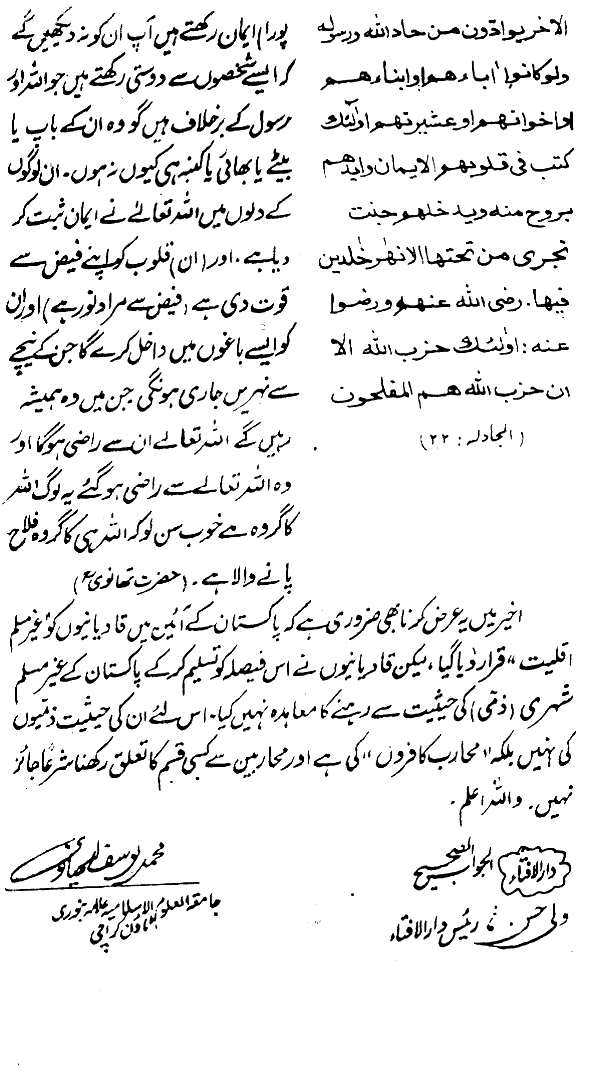 الاخر يوادّون من حاد الله ورسوله
ولو كانوا اٰباءهم او ابناءهم
او اخوانهم او عشيرتهم اولٰئك
كتب فى قلوبهم الايمان وايدهم
بروح منه ويدخلهم جنت
تجرى من تحتها الانهٰر خٰلدين
فيها. رضى الله عنهم ورضوا
عنه: اولٰئك حزب الله الا
ان حزب الله هم المفلحون
(المجادلہ: ۲۲)
پورا) ایمان رکھتے ہیں آپ ان کو نہ دیکھیں گے
کہ ایسے شخصوں سے دوستی رکھتے ہیں جو اللہ اور
رسول کے برخلاف ہیں گو وہ ان کے باپ یا
بیٹے یا بھائی یا کنبہ ہی کیوں نہ ہوں۔ ان لوگوں
کے دلوں میں اللہ تعالےٰ نے ایمان ثبت کر
دیا ہے۔ اور (ان) قلوب کو اپنے فیض سے
قوت دی ہے (فیض سے مراد نور ہے) اور ان
کو ایسے باغوں میں داخل کرے گا جن کے نیچے
سے نہریں جاری ہونگی جن میں وہ ہمیشہ
رہیں گے اللہ تعالےٰ ان سے راضی ہوگا اور
وہ اللہ تعالےٰ سے راضی ہو گئے یہ لوگ اللہ
کا گروہ ہے خوب سن لو کہ اللہ ہی کا گروہ فلاح
پانے والا ہے۔ (حضرت تھانویؒ)
اخیر میں یہ عرض کرنا بھی ضروری ہے کہ پاکستان کے آئین میں قادیانیوں کو "غیر مسلم
اقلیت" قرار دیا گیا، لیکن قادیانیوں نے اس فیصلہ کو تسلیم کرکے پاکستان کے غیر مسلم
شہری (ذمّی) کی حیثیت سے رہنے کا معاہدہ نہیں کیا۔ اس لئے ان کی حیثیت ذمّیوں
کی نہیں بلکہ "محارب کافروں" کی ہے اور محاربین سے کسی قسم کا تعلق رکھنا شرعاً جائز
نہیں۔ واللہ اعلم۔
دار الافتاء الجواب صحیح
ولی حسن رئیس دار الافتاء
محمد یوسف لدھیانوی
جامعۃ العلوم الاسلامیہ علامہ بنوری
ٹاؤن کراچی